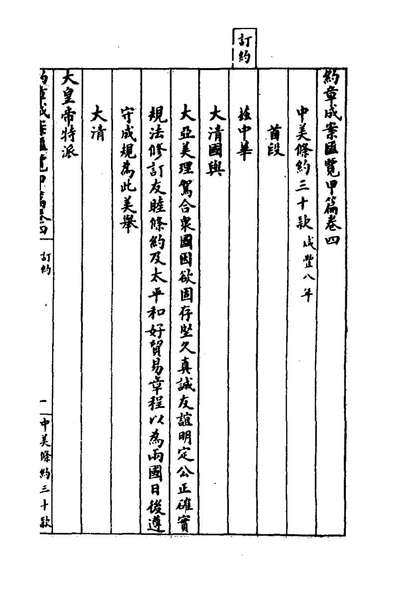 訂約
約章成案匯覽甲篇卷四
中美條約三十款咸豐八年
首段
茲中華
大清國與
大亞美理駕合衆國因欲固存堅久真誠友誼明定公正確實
規法修訂友睦條約及太平和好貿易章程以為兩國日後遵
守成規為此美舉
大清
大皇帝特派
約章成案匯覽甲篇卷四 訂約 一 中美條約三十款